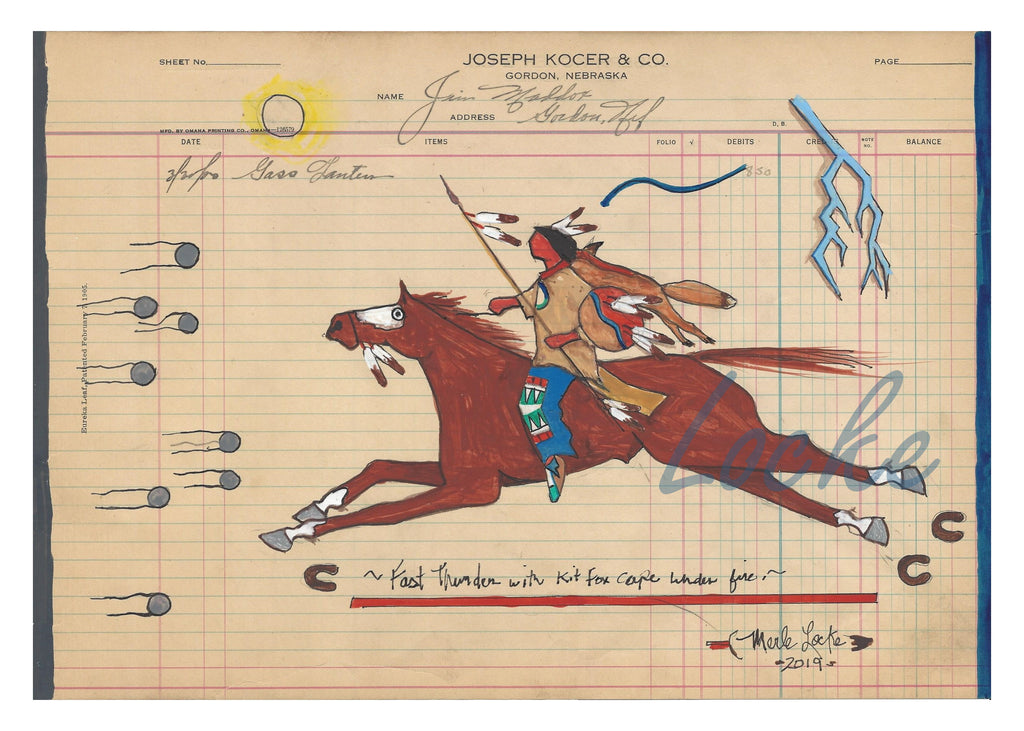 JOSEPH KOCER & CO.
GORDON, NEBRASKA
SHEET No.
PAGE
NAME Jim Maddox
ADDRESS Gordon, Neb
MFG. BY OMAHA PRINTING CO., OMAHA—126579
D. B.
DATE ITEMS FOLIO √ DEBITS CREDITS NOTE NO. BALANCE
Gass Lantern 850
Eureka Leaf, Patented February 7, 1905.
Locke
~ Fast Thunder with Kit Fox Cape under fire. ~
Merle Locke
-2019-